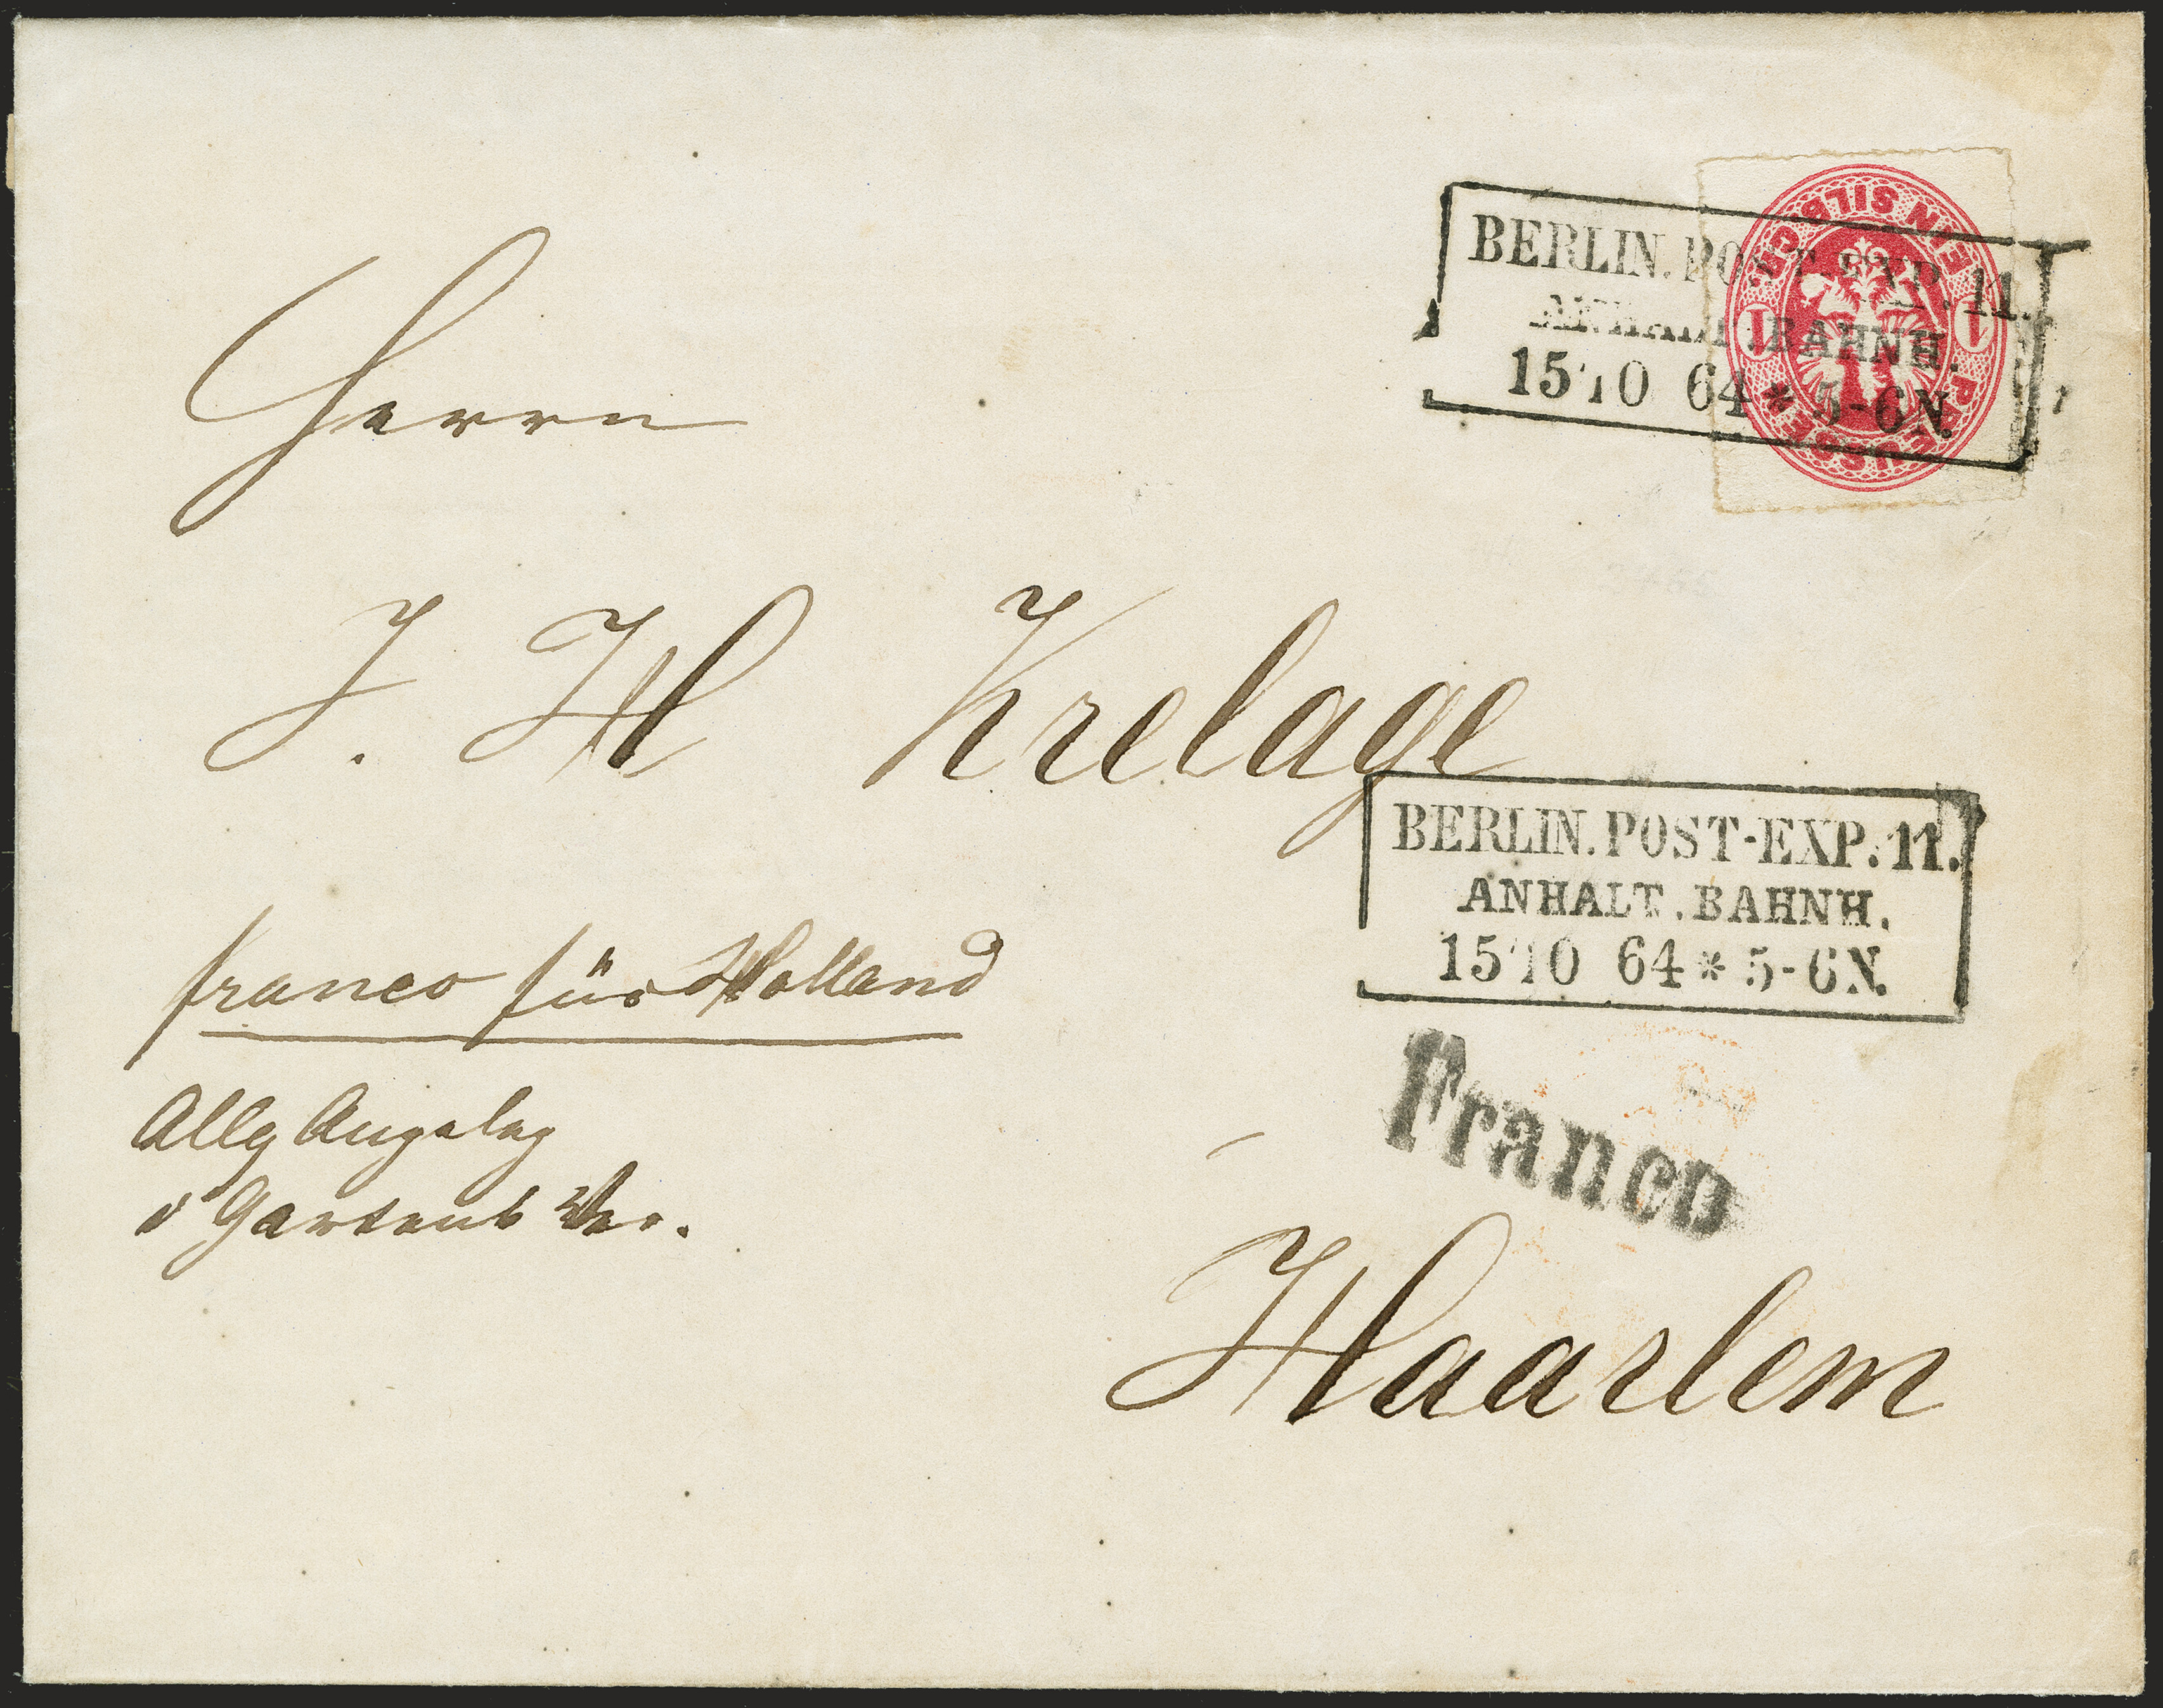 BERLIN.POST-EXP.11.
ANHALT.BAHNH.
15 10 64 * 5-6N.
EIN SILB.GR.
1 1
PREUSSEN
Herrn
J. H Krelage
BERLIN.POST-EXP.11.
ANHALT.BAHNH.
15 10 64 * 5-6N.
franco für Holland
Franco
Allg Angeleg
d Gartenb Ver.
Haarlem